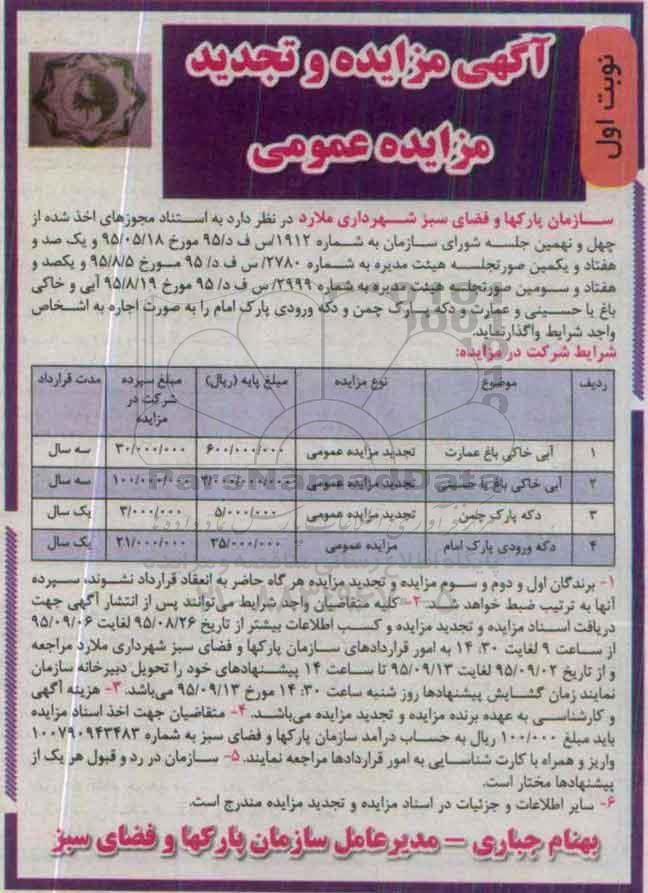 نوبت اول
آگهی مزایده و تجدید
مزایده عمومی
سازمان پارکها و فضای سبز شهرداری ملارد در نظر دارد به استناد مجوزهای اخذ شده از
چهل و نهمین جلسه شورای سازمان به شماره ۱۹۱۲/س ف د/۹۵ مورخ ۹۵/۰۵/۱۸ و یک صد و
هفتاد و یکمین صورتجلسه هیئت مدیره به شماره ۲۷۸۰/ س ف د/ ۹۵ مورخ ۹۵/۸/۵ و یکصد و
هفتاد و سومین صورتجلسه هیئت مدیره به شماره ۲۹۹۹/ س ف د/ ۹۵ مورخ ۹۵/۸/۱۹ آبی و خاکی
باغ یا حسینی و عمارت و دکه پارک چمن و دکه ورودی پارک امام را به صورت اجاره به اشخاص
واجد شرایط واگذار نماید.
شرایط شرکت در مزایده:
ردیف موضوع نوع مزایده مبلغ پایه (ریال) مبلغ سپرده شرکت در مزایده مدت قرارداد
۱ آبی خاکی باغ عمارت تجدید مزایده عمومی ۶۰۰/۰۰۰/۰۰۰ ۳۰/۰۰۰/۰۰۰ سه سال
۲ آبی خاکی باغ یا حسینی تجدید مزایده عمومی ۲/۰۰۰/۰۰۰/۰۰۰ ۱۰۰/۰۰۰/۰۰۰ سه سال
۳ دکه پارک چمن تجدید مزایده عمومی ۵/۰۰۰/۰۰۰ ۳/۰۰۰/۰۰۰ یک سال
۴ دکه ورودی پارک امام مزایده عمومی ۳۵/۰۰۰/۰۰۰ ۲۱/۰۰۰/۰۰۰ یک سال
ParsNamadData
۱- برندگان اول و دوم و سوم مزایده و تجدید مزایده هر گاه حاضر به انعقاد قرارداد نشوند، سپرده
آنها به ترتیب ضبط خواهد شد. ۲- کلیه متقاضیان واجد شرایط می‌توانند پس از انتشار آگهی جهت
دریافت اسناد مزایده و تجدید مزایده و کسب اطلاعات بیشتر از تاریخ ۹۵/۰۸/۲۶ لغایت ۹۵/۰۹/۰۶
از ساعت ۹ لغایت ۱۴:۳۰ به امور قراردادهای سازمان پارکها و فضای سبز شهرداری ملارد مراجعه
و از تاریخ ۹۵/۰۹/۰۲ لغایت ۹۵/۰۹/۱۳ تا ساعت ۱۴ پیشنهادهای خود را تحویل دبیرخانه سازمان
نمایند زمان گشایش پیشنهادها روز شنبه ساعت ۱۴:۳۰ مورخ ۹۵/۰۹/۱۳ می‌باشد. ۳- هزینه آگهی
و کارشناسی به عهده برنده مزایده و تجدید مزایده می‌باشد. ۴- متقاضیان جهت اخذ اسناد مزایده
باید مبلغ ۱۰۰/۰۰۰ ریال به حساب درآمد سازمان پارکها و فضای سبز به شماره ۱۰۰۷۹۰۹۴۳۴۸۳
واریز و همراه با کارت شناسایی به امور قراردادها مراجعه نمایند. ۵- سازمان در رد و قبول هر یک از
پیشنهادها مختار است.
۶- سایر اطلاعات و جزئیات در اسناد مزایده و تجدید مزایده مندرج است.
بهنام جباری – مدیرعامل سازمان پارکها و فضای سبز